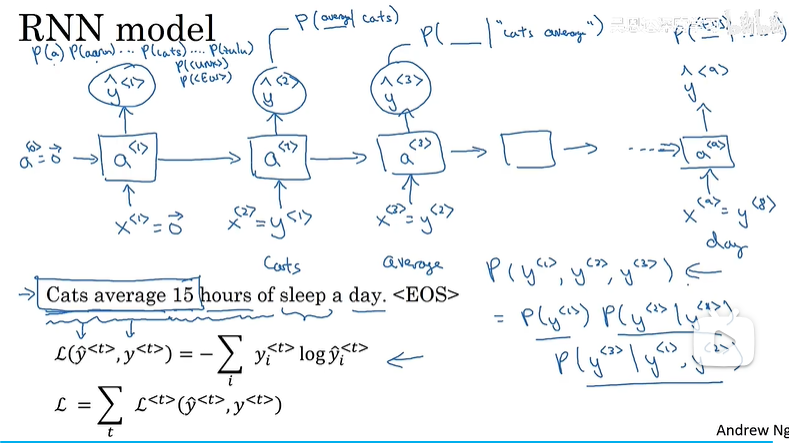 RNN model
P(a) P(aaron) ... P(cats) .... P(zulu)
P(<UNK>)
P(<EOS>)
P(average | cats)
P( __ | "cats average")
ŷ<1>
ŷ<2>
ŷ<3>
ŷ<9>
a<0> = 0⃗
a<1>
a<2>
a<3>
a<9>
x<1> = 0⃗
x<2> = y<1>
x<3> = y<2>
x<9> = y<8>
Cats
average
day
Cats average 15 hours of sleep a day. <EOS>
P(y<1>, y<2>, y<3>)
= P(y<1>) P(y<2> | y<1>)
P(y<3> | y<1>, y<2>)
ℒ(ŷ<t>, y<t>) = − ∑ᵢ yᵢ<t> log ŷᵢ<t>
ℒ = ∑ₜ ℒ<t>(ŷ<t>, y<t>)
Andrew Ng